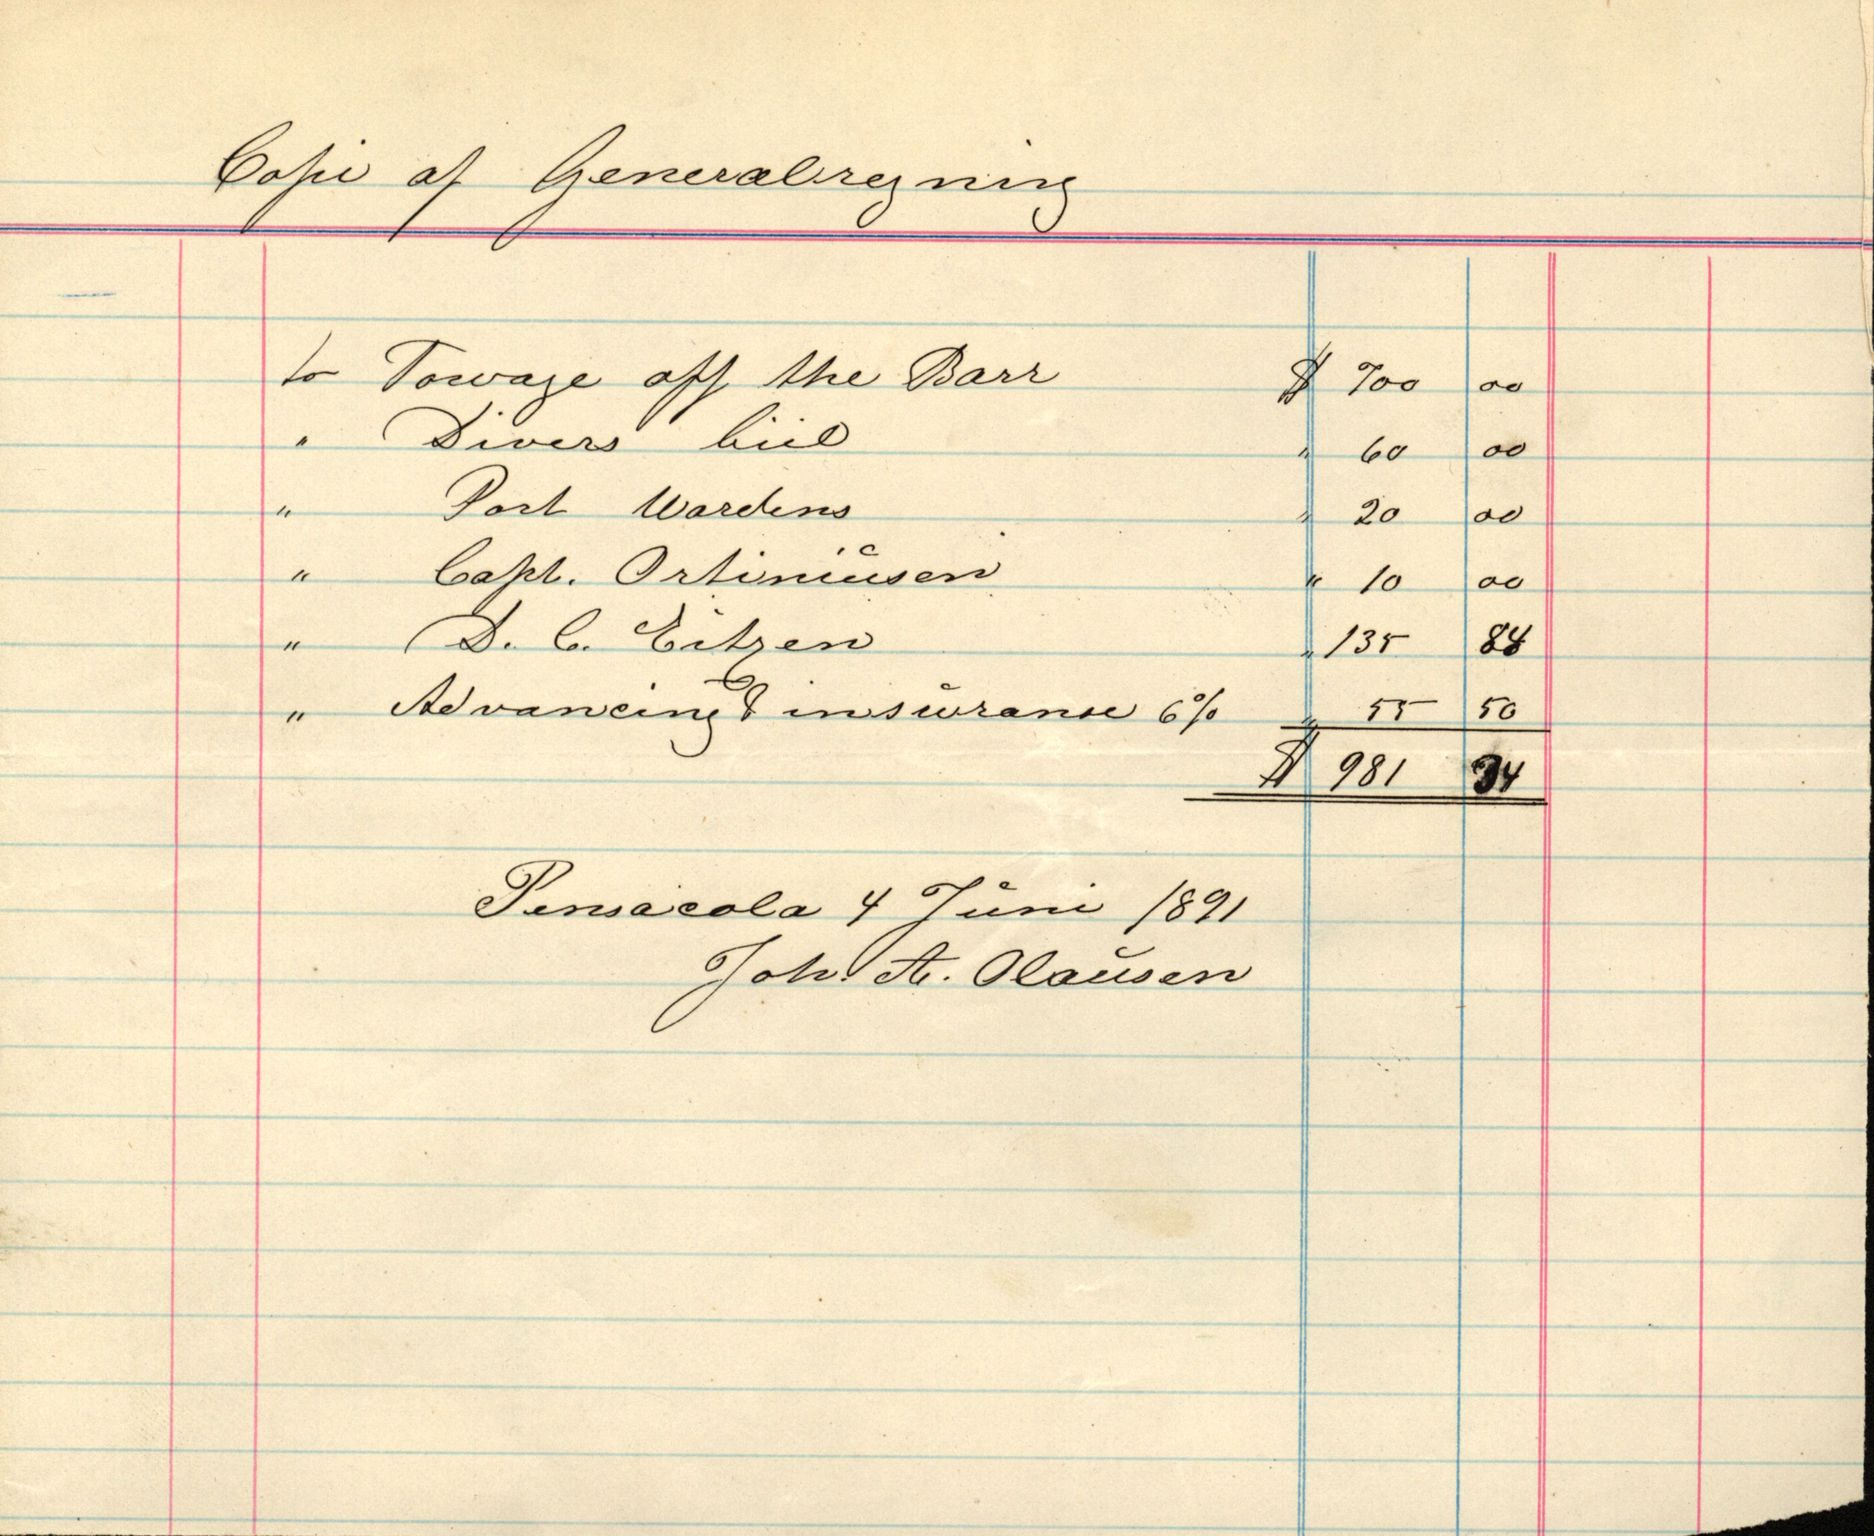 Copie af Generalregning
to Towage off the Barr $ 700 00
" Divers bill " 60 00
" Port Wardens " 20 00
" Capt. Ortiniusen " 10 00
" D. C. Eitzen " 135 84
" Advancing & insuranse 6% " 55 50
$ 981 34
Pensacola 4 Juni 1891
Joh. A. Olausen